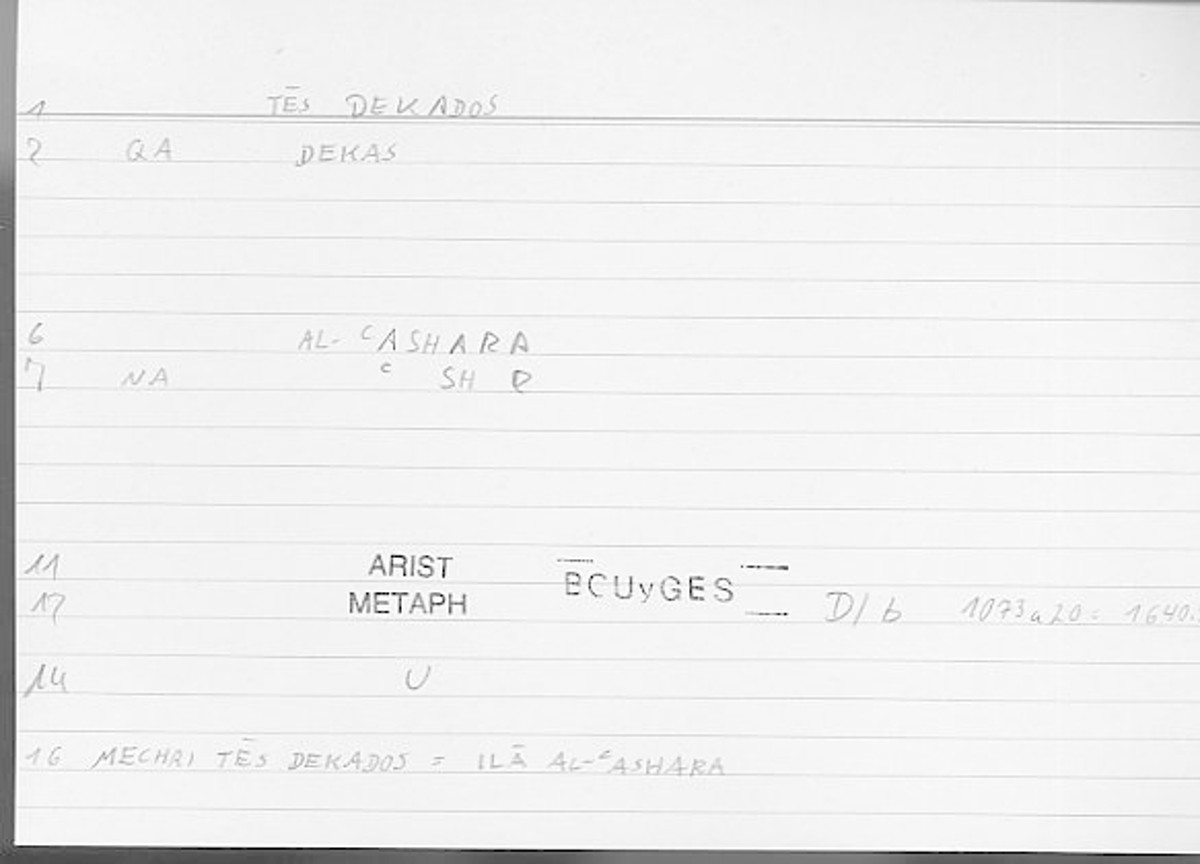 1 TĒS DEKADOS
2 QA DEKAS
6 AL-ᶜASHARA
7 NA ᶜ SH R
11 ARIST BCUyGES
12 METAPH D/b 1073a20 = 1640.
14 U
16 MECHRI TĒS DEKADOS = ILĀ AL-ᶜASHARA